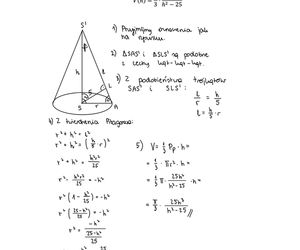 V(h) = π/3 · 25h³/h²-25
S'
1) Przyjmijmy oznaczenia jak
na rysunku.
2) ΔSAS' i ΔSLS' są podobne
z cechy kąt-kąt-kąt.
3) Z podobieństwa trójkątów
SAS' i SLS':
l/r = h/5
l = h/5 r
h
l
L
5
S
r
A
4) Z twierdzenia Pitagorasa:
r² + h² = l²
r² + h² = (h/5 · r)²
r² + h² = h²r²/25
r² - h²r²/25 = -h²
r² (1 - h²/25) = -h²
r² (25-h²/25) = -h²
r² = -h²/(25-h²/25)
5) V = 1/3 Pp · h =
= 1/3 π r² · h =
= 1/3 π · 25h²/h²-25 · h =
= π/3 · 25h³/h²-25